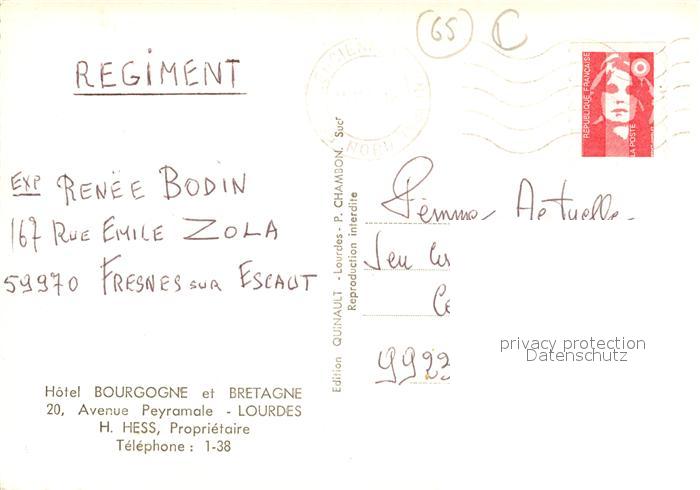 (65) C
REGIMENT
EXP RENÉE BODIN
167 RUE EMILE ZOLA
59970 FRESNES SUR ESCAUT
Hôtel BOURGOGNE et BRETAGNE
20, Avenue Peyramale - LOURDES
H. HESS, Propriétaire
Téléphone : 1-38
Edition QUINAULT - Lourdes - P. CHAMBON. Sucr
Reproduction interdite
RÉPUBLIQUE FRANÇAISE
LA POSTE
NORD
Femme Actuelle
Jeu
9922
privacy protection
Datenschutz